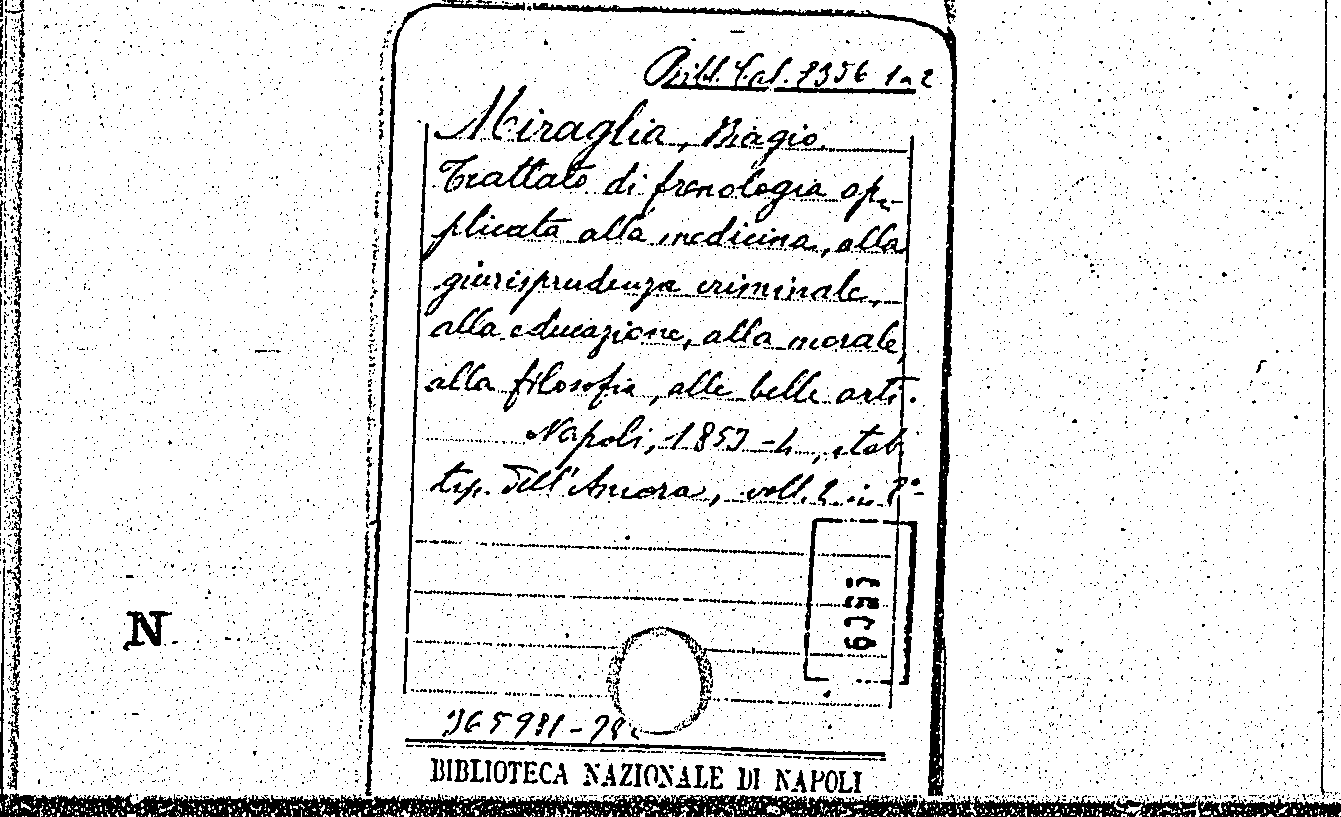 Bibl. Cal. 2356 1a2
Miraglia, Biagio.
Trattato di frenologia ap-
plicata alla medicina, alla
giurisprudenza criminale,
alla educazione, alla morale,
alla filosofia, alle belle arti.
Napoli, 1853-4, stab.
tip. dell'Ancora, voll. 2 in 8°-
N
BIBLIOTECA NAZIONALE DI NAPOLI